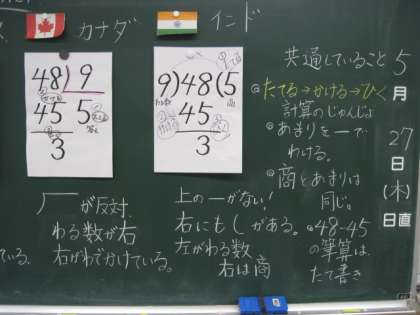 カナダ
インド
48 9
45 5
3
9)48(5
45
3
が反対.
わる数が右
右がわでかけている。
上の一がない!
右にも( がある。
左がわる数
右は商
共通していること
たてる→かける→ひく
計算のじゅんじょ
あまりを一で
わける。
商とあまりは
同じ。
48-45
の筆算は
たて書き
5月27日(木)
日直
ている。